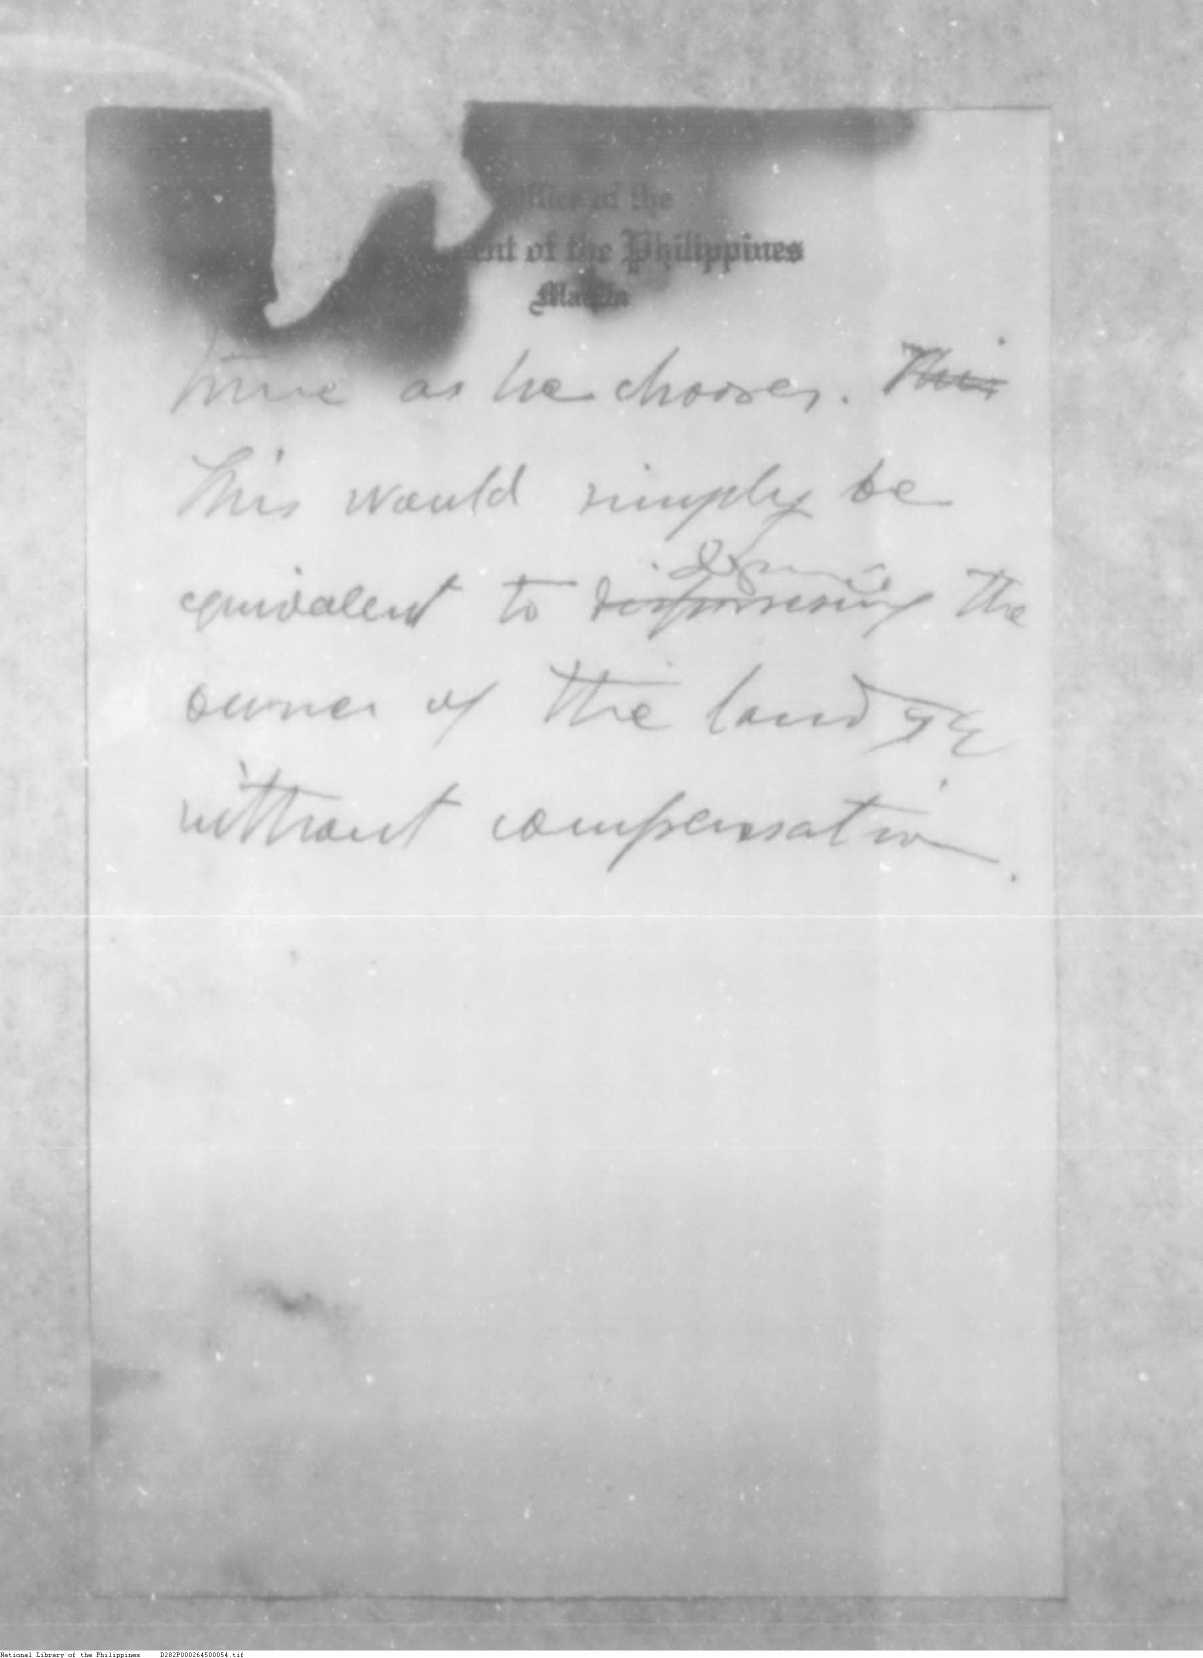 Office of the
ent of the Philippines
Manila
time as he chooses. This
This would simply be
equivalent to the
owner of the land
without compensation.
National Library of the Philippines D282P000264500054.tif